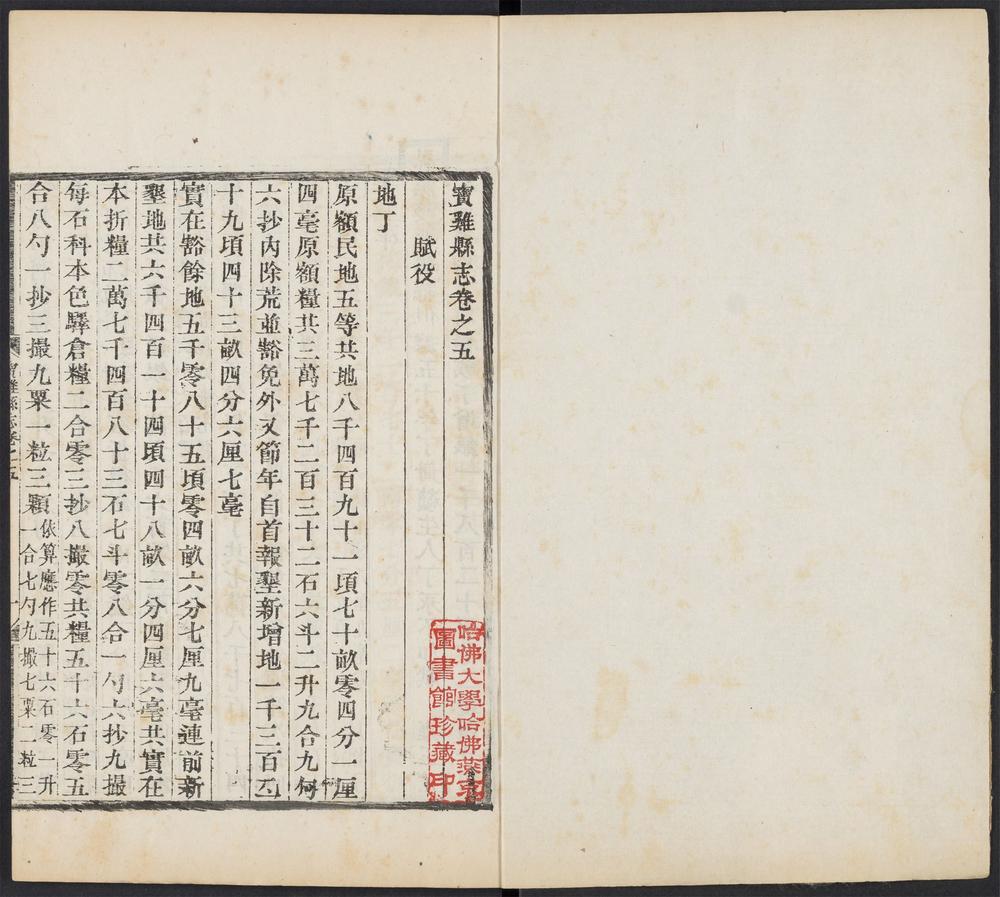 寶雞縣志卷之五
賦役
地丁
原額民地五等共地八千四百九十一頃七十畝零四分一厘
四毫原額糧共三萬七千二百三十二石六斗二升九合九勺
六抄內除荒並豁免外又節年自首報墾新增地一千三百二
十九頃四十三畝四分六厘七毫
實在豁餘地五千零八十五頃零四畝六分七厘九毫連前新
墾地共六千四百一十四頃四十八畝一分四厘六毫共實在
本折糧二萬七千四百八十三石七斗零八合一勺六抄九撮
每石科本色驛倉糧二合零三抄八撮零共糧五十六石零五
合八勺一抄三撮九粟一粒三顆依算應作五十六石零一升
一合七勺九撮七粟二粒三
寶雞縣志卷之五
一
哈佛大學哈佛燕京
圖書館珍藏印